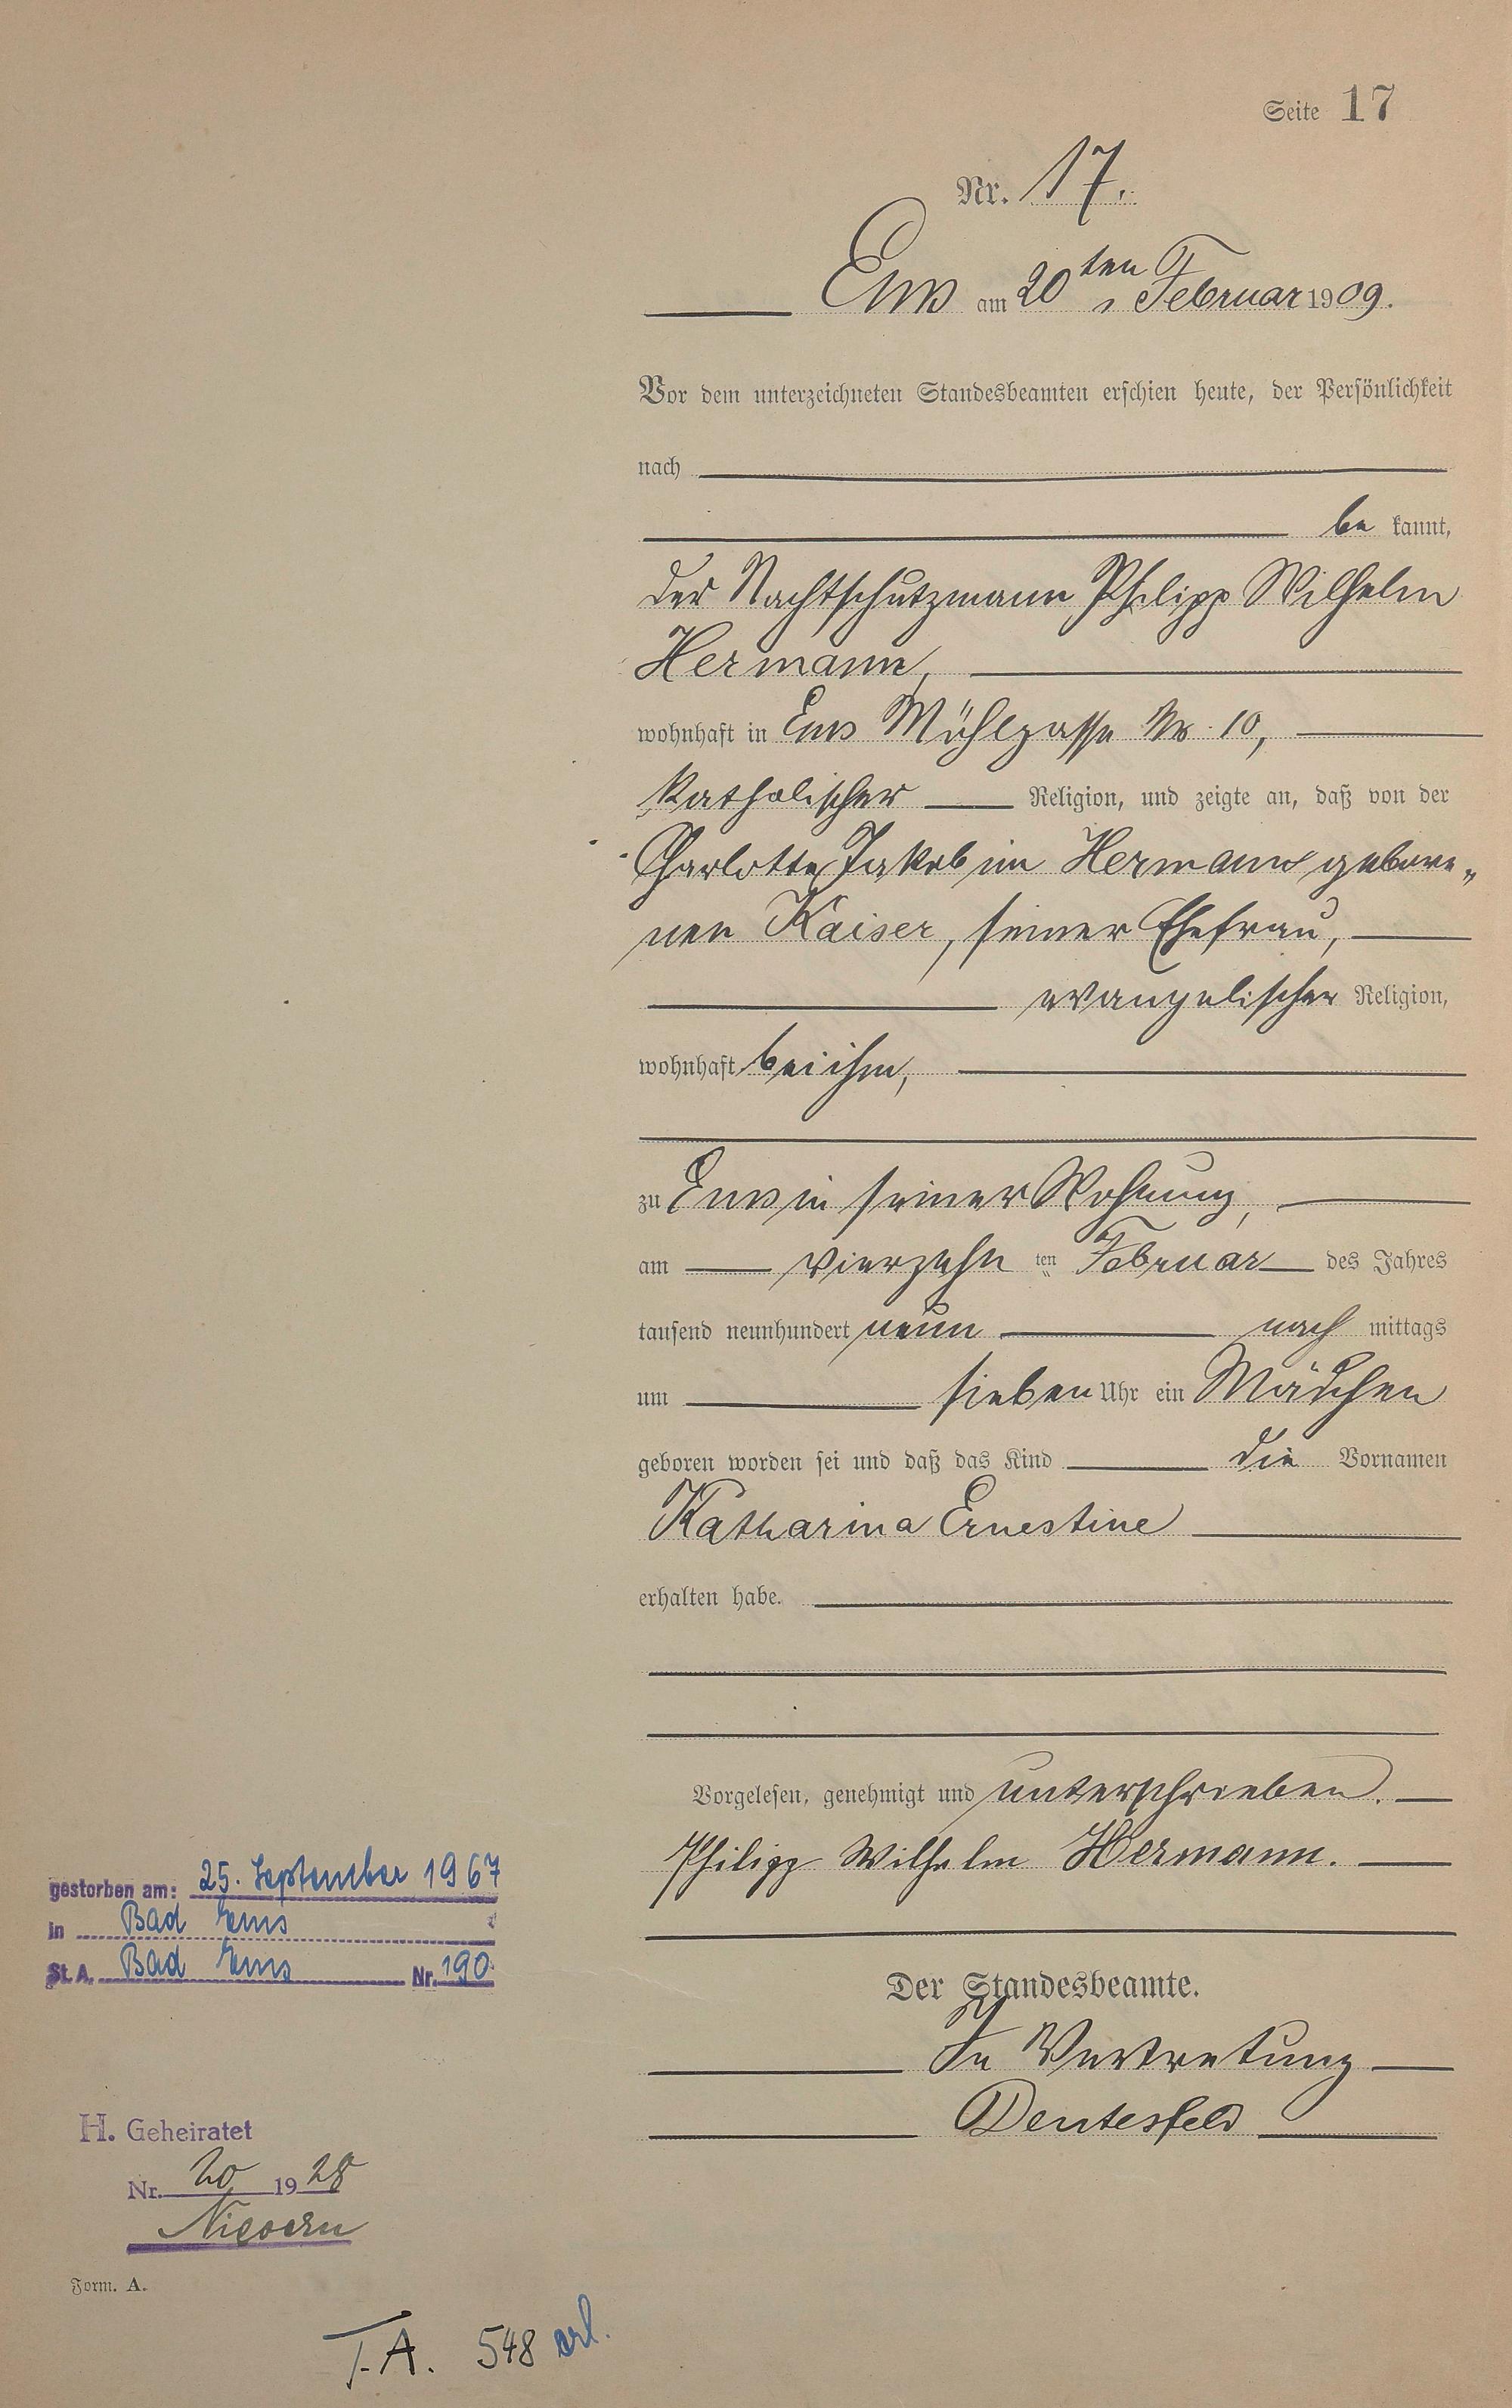 Seite 17
Nr. 17.
Ems am 20ten Februar 1909.
Vor dem unterzeichneten Standesbeamten erschien heute, der Persönlichkeit
nach
be kannt,
der Nachtschutzmann Philipp Wilhelm
Hermann,
wohnhaft in Ems Mühlgasse Nr. 10,
katholischer Religion, und zeigte an, daß von der
Charlotte Jakobine Hermann gebore„
nen Kaiser, seiner Ehefrau,
evangelischer Religion,
wohnhaft bei ihm,
zu Ems in seiner Wohnung,
am vierzehn ten Februar des Jahres
tausend neunhundert neun nach mittags
um sieben Uhr ein Mädchen
geboren worden sei und daß das Kind die Vornamen
Katharina Ernestine
erhalten habe.
Vorgelesen, genehmigt und unterschrieben.
Philipp Wilhelm Hermann.
Der Standesbeamte.
In Vertretung
Dentesfeld
gestorben am: 25. September 1967
in Bad Ems
St. A. Bad Ems Nr. 190
H. Geheiratet
Nr. 20 1928
Nievern
Form. A.
T.A. 548 erl.